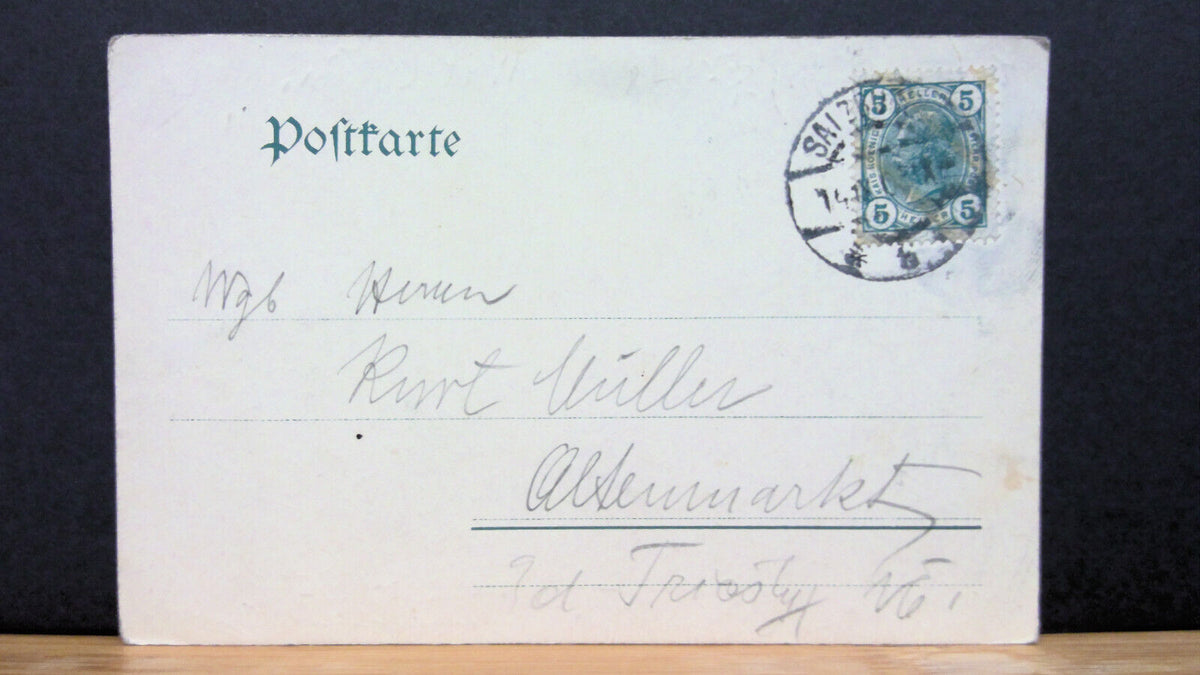 Postkarte
5 HELLER 5
5 HELLER 5
SALZ
Wgb Herrn
Kurt Müller
Altenmarkt
a/d Triesting N.Ö.